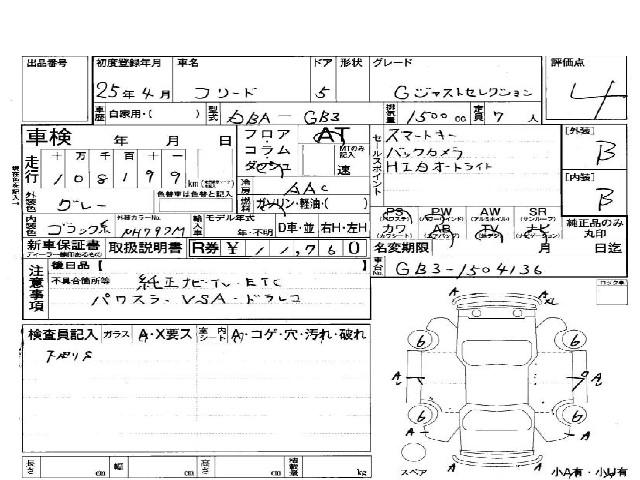 出品番号 初度登録年月 車名 ドア 形状 グレード 評価点
25年4月 フリード 5 Gジャストセレクション 4
車歴 自家用・( ) 型式 DBA-GB3 排気量 1500cc 定員 7人
車検 年 月 日 フロア・AT スマートキー [外装]
走行 十万千百十一 コラム・ MTのみ記入 バックカメラ B
108199km ダッシュ 速 セールスポイント HIDオートライト
外装色 グレー 色替車は色替と記入 冷房 AAC [内装]
燃料 ガソリン・軽油・( ) B
内装色 ブラック系 外装カラーNo. NH797M 輸入車 モデル年式 年・不明 D車・並 右H・左H
PS PW AW SR 純正品のみ丸印
カワ AB TV ナビ
新車保証書 取扱説明書 R券 ¥11,760 名変期限 月 日迄
車台No. GB3-1504136
注意事項 後日品【 】
不具合箇所等 純正ナビ・TV・ETC
パワスラ・VSA・ドラレコ
ロック車
検査員記入 ガラス A・X要ス 室内シート A・コゲ・穴・汚れ・破れ
A XL
6 6
A A
6 6
A A
A
スペア 小A有・小U有
長さ cm 幅 cm 高さ cm 積載量 kg